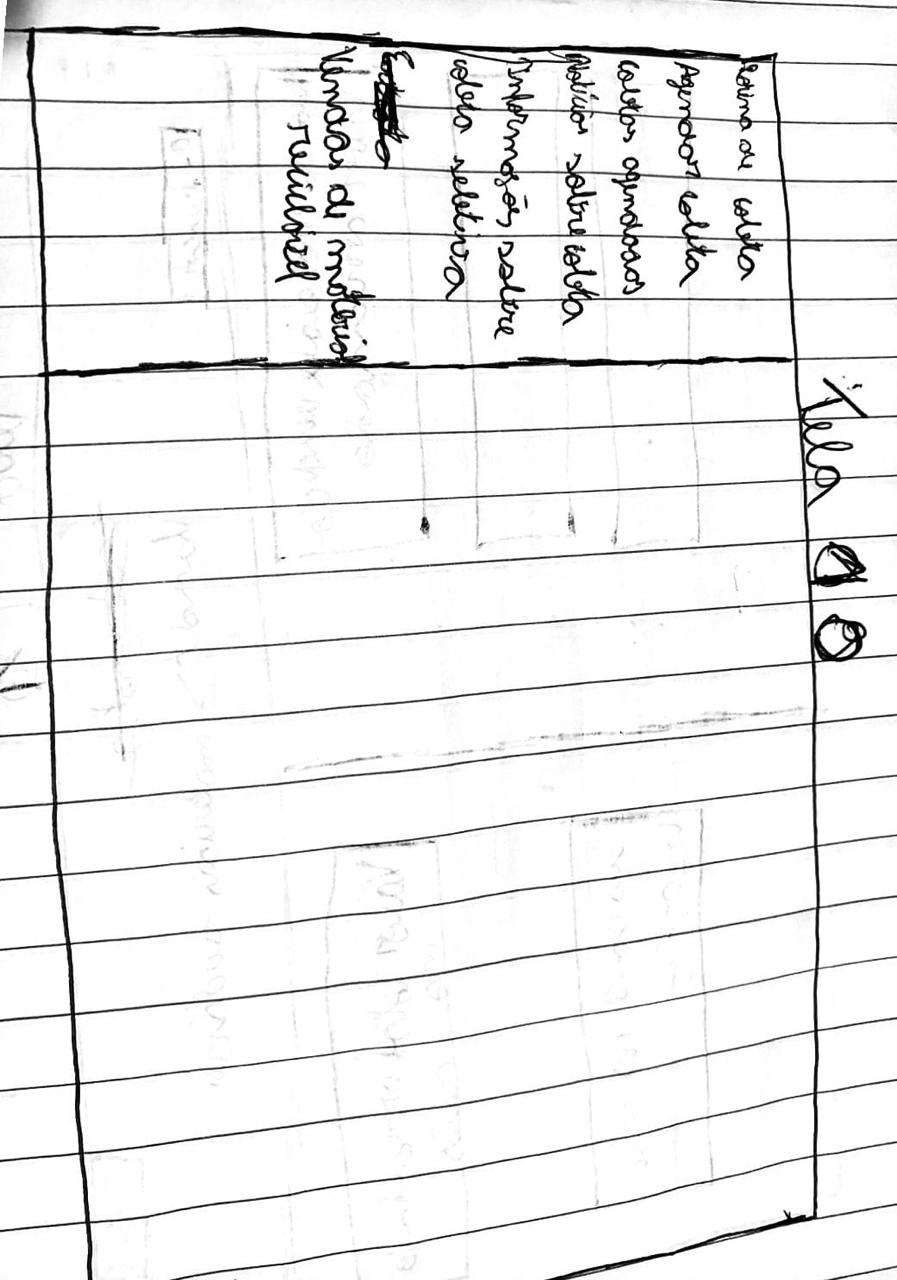 Tela
Rotina de coleta
Agendar coleta
Coletas agendadas
Notícias sobre coleta
Informações sobre
coleta seletiva
Vendas de material
reciclável